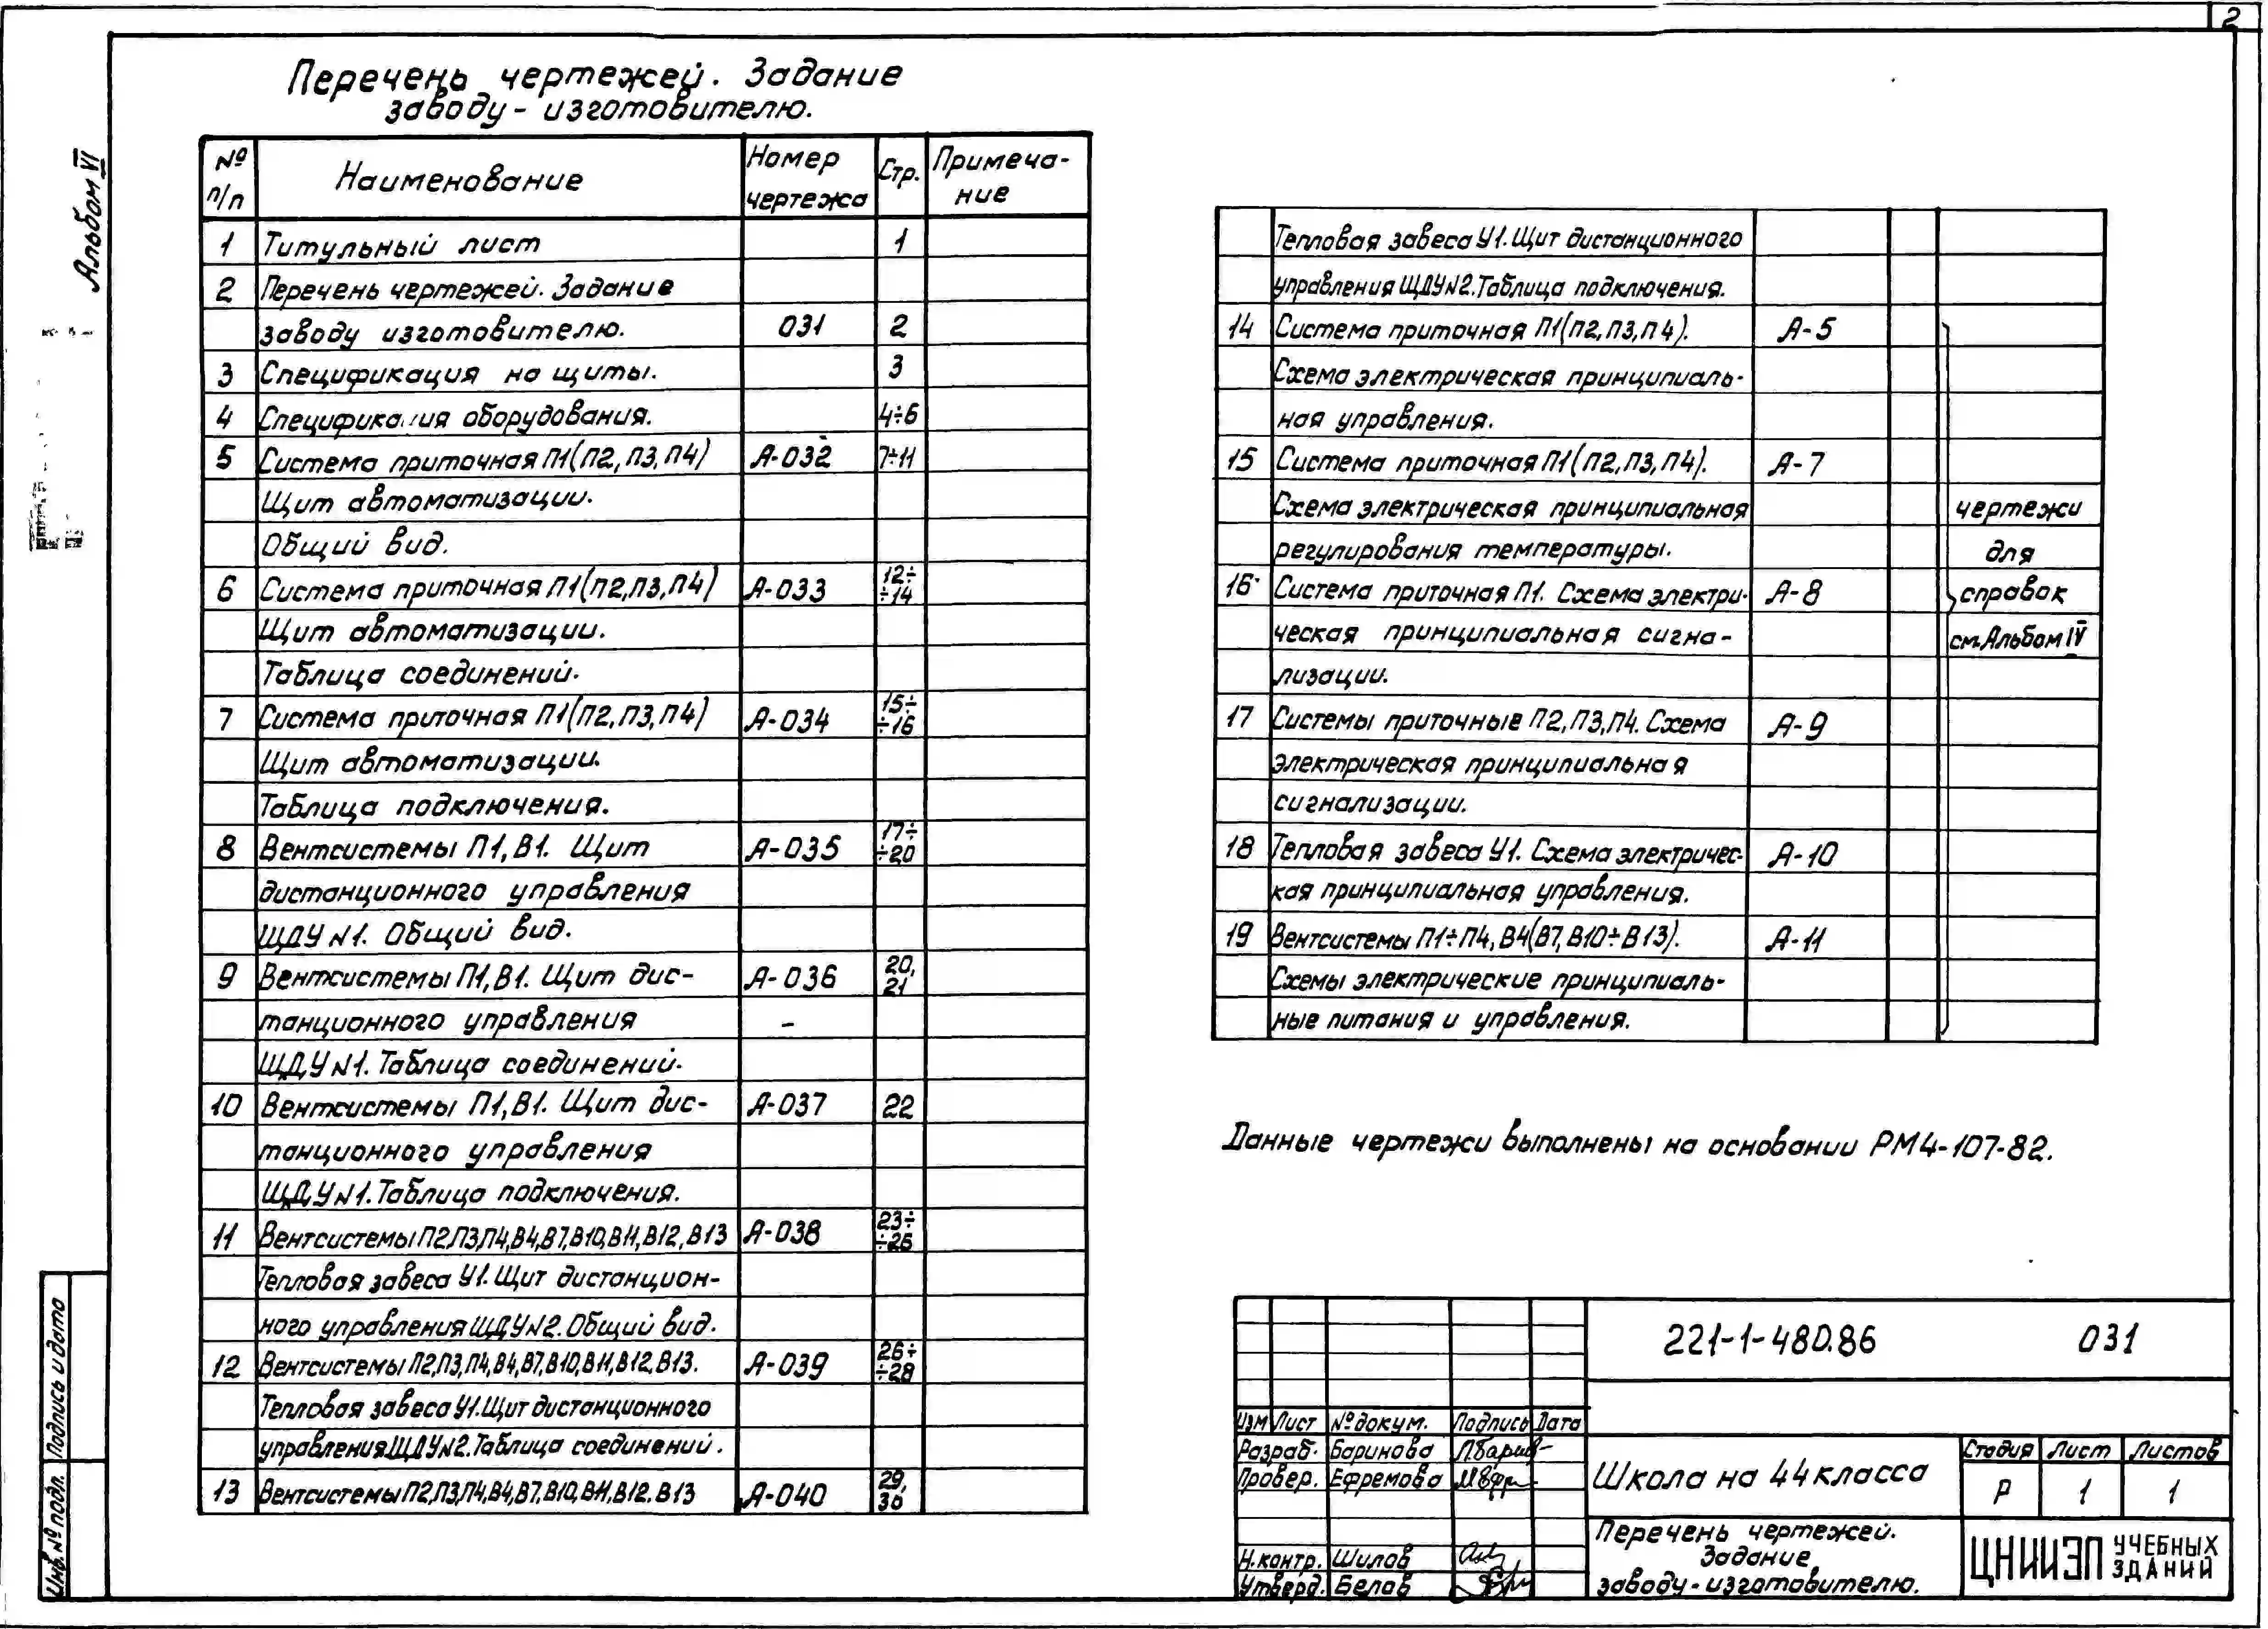 2
Альбом VI
Перечень чертежей. Задание
заводу-изготовителю.
№ п/п Наименование Номер чертежа Стр. Примеча-ние
1 Титульный лист 1
2 Перечень чертежей. Задание
заводу изготовителю. 031 2
3 Спецификация на щиты. 3
4 Спецификация оборудования. 4÷6
5 Система приточная П1(П2, П3, П4) А-032 7÷11
Щит автоматизации.
Общий вид.
6 Система приточная П1(П2,П3,П4) А-033 12÷÷14
Щит автоматизации.
Таблица соединений.
7 Система приточная П1(П2,П3,П4) А-034 15÷÷16
Щит автоматизации.
Таблица подключения.
8 Вентсистемы П1,В1. Щит А-035 17÷÷20
дистанционного управления
ЩДУ№1. Общий вид.
9 Вентсистемы П1,В1. Щит дис- А-036 20, 21
танционного управления
ЩДУ№1. Таблица соединений.
10 Вентсистемы П1,В1. Щит дис- А-037 22
танционного управления
ЩДУ№1. Таблица подключения.
11 Вентсистемы П2,П3,П4,В4,В7,В10,В11,В12,В13 А-038 23÷÷26
Тепловая завеса У1. Щит дистанцион-
ного управления ЩДУ№2. Общий вид.
12 Вентсистемы П2,П3,П4,В4,В7,В10,В11,В12,В13. А-039 26÷÷28
Тепловая завеса У1. Щит дистанционного
управления ЩДУ№2. Таблица соединений.
13 Вентсистемы П2,П3,П4,В4,В7,В10,В11,В12.В13 А-040 29, 30
Тепловая завеса У1. Щит дистанционного
управления ЩДУ№2. Таблица подключения.
14 Система приточная П1(П2,П3,П4). А-5
Схема электрическая принципиаль-
ная управления.
15 Система приточная П1(П2,П3,П4). А-7
Схема электрическая принципиальная чертежи
регулирования температуры. для
16 Система приточная П1. Схема электри- А-8 справок
ческая принципиальная сигна- см.Альбом IV
лизации.
17 Системы приточные П2,П3,П4. Схема А-9
электрическая принципиальная
сигнализации.
18 Тепловая завеса У1. Схема электричес- А-10
кая принципиальная управления.
19 Вентсистемы П1÷П4, В4(В7, В10÷В13). А-11
Схемы электрические принципиаль-
ные питания и управления.
Данные чертежи выполнены на основании РМ4-107-82.
221-1-480.86 031
Изм Лист № докум. Подпись Дата
Разраб. Баринова
Провер. Ефремова
Н.контр. Шилов
Утверд. Белов
Школа на 44 класса
Стадия Лист Листов
Р 1 1
Перечень чертежей.
Задание
заводу-изготовителю.
ЦНИИЭП УЧЕБНЫХ ЗДАНИЙ
Подпись и дата
Инв.№ подл.